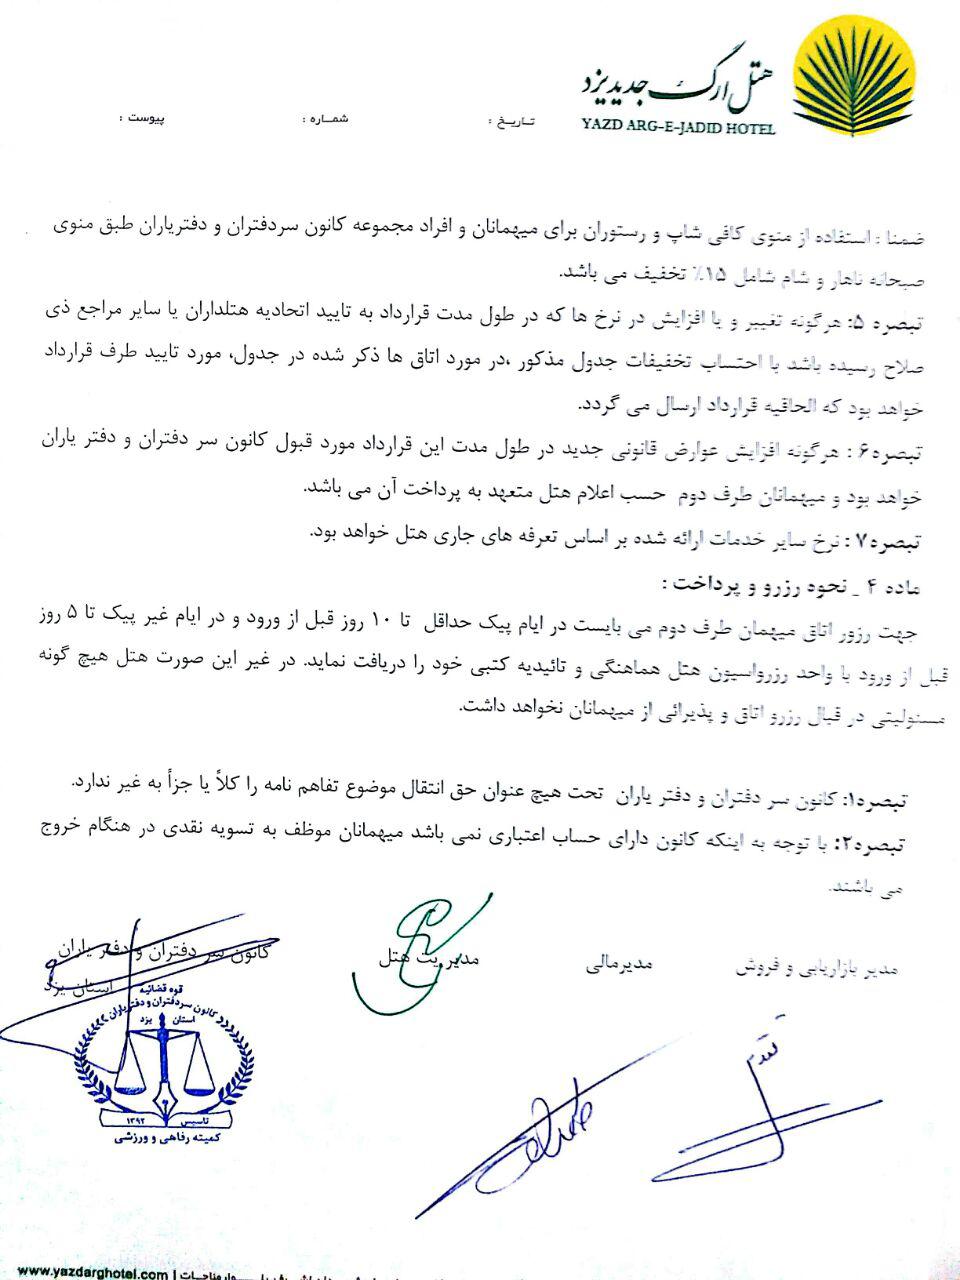 هتل ارگ جدید یزد
YAZD ARG-E-JADID HOTEL
تـاریـخ : شمـاره : پیوست :
ضمنا : استفاده از منوی کافی شاپ و رستوران برای میهمانان و افراد مجموعه کانون سردفتران و دفتریاران طبق منوی
صبحانه ناهار و شام شامل ۱۵٪ تخفیف می باشد.
تبصره ۵: هرگونه تغییر و یا افزایش در نرخ ها که در طول مدت قرارداد به تایید اتحادیه هتلداران یا سایر مراجع ذی
صلاح رسیده باشد با احتساب تخفیفات جدول مذکور ،در مورد اتاق ها ذکر شده در جدول، مورد تایید طرف قرارداد
خواهد بود که الحاقیه قرارداد ارسال می گردد.
تبصره۶ : هرگونه افزایش عوارض قانونی جدید در طول مدت این قرارداد مورد قبول کانون سر دفتران و دفتر یاران
خواهد بود و میهمانان طرف دوم حسب اعلام هتل متعهد به پرداخت آن می باشد.
تبصره۷ : نرخ سایر خدمات ارائه شده بر اساس تعرفه های جاری هتل خواهد بود.
ماده ۴ _ نحوه رزرو و پرداخت :
جهت رزور اتاق میهمان طرف دوم می بایست در ایام پیک حداقل تا ۱۰ روز قبل از ورود و در ایام غیر پیک تا ۵ روز
قبل از ورود با واحد رزرواسیون هتل هماهنگی و تائیدیه کتبی خود را دریافت نماید. در غیر این صورت هتل هیچ گونه
مسئولیتی در قبال رزرو اتاق و پذیرائی از میهمانان نخواهد داشت.
تبصره۱: کانون سر دفتران و دفتر یاران تحت هیچ عنوان حق انتقال موضوع تفاهم نامه را کلاً یا جزأ به غیر ندارد.
تبصره۲: با توجه به اینکه کانون دارای حساب اعتباری نمی باشد میهمانان موظف به تسویه نقدی در هنگام خروج
می باشند.
مدیر بازاریابی و فروش مدیرمالی مدیریت هتل کانون سر دفتران و دفتر یاران
استان یزد
قوه قضائیه
کانون سردفتران و دفتریاران
استان یزد
تاسیس ۱۳۹۲
کمیته رفاهی و ورزشی
www.yazdarghotel.com